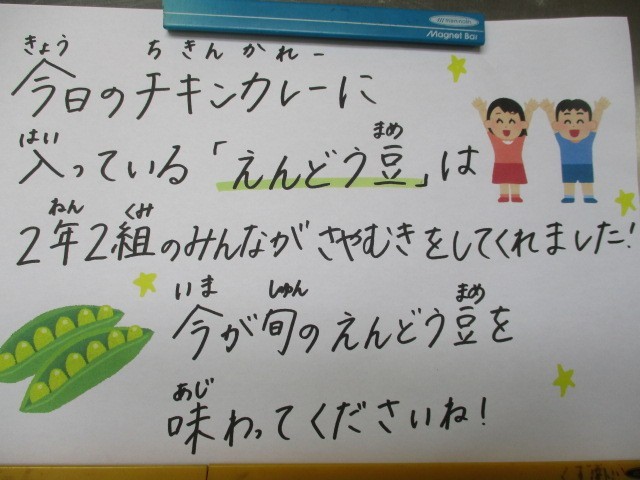 Magnet Bar
きょう ちきんかれー
今日のチキンカレーに
はい まめ
入っている「えんどう豆」は
ねん くみ
2年2組のみんながさやむきをしてくれました!
いま しゅん まめ
今が旬のえんどう豆を
あじ
味わってくださいね!